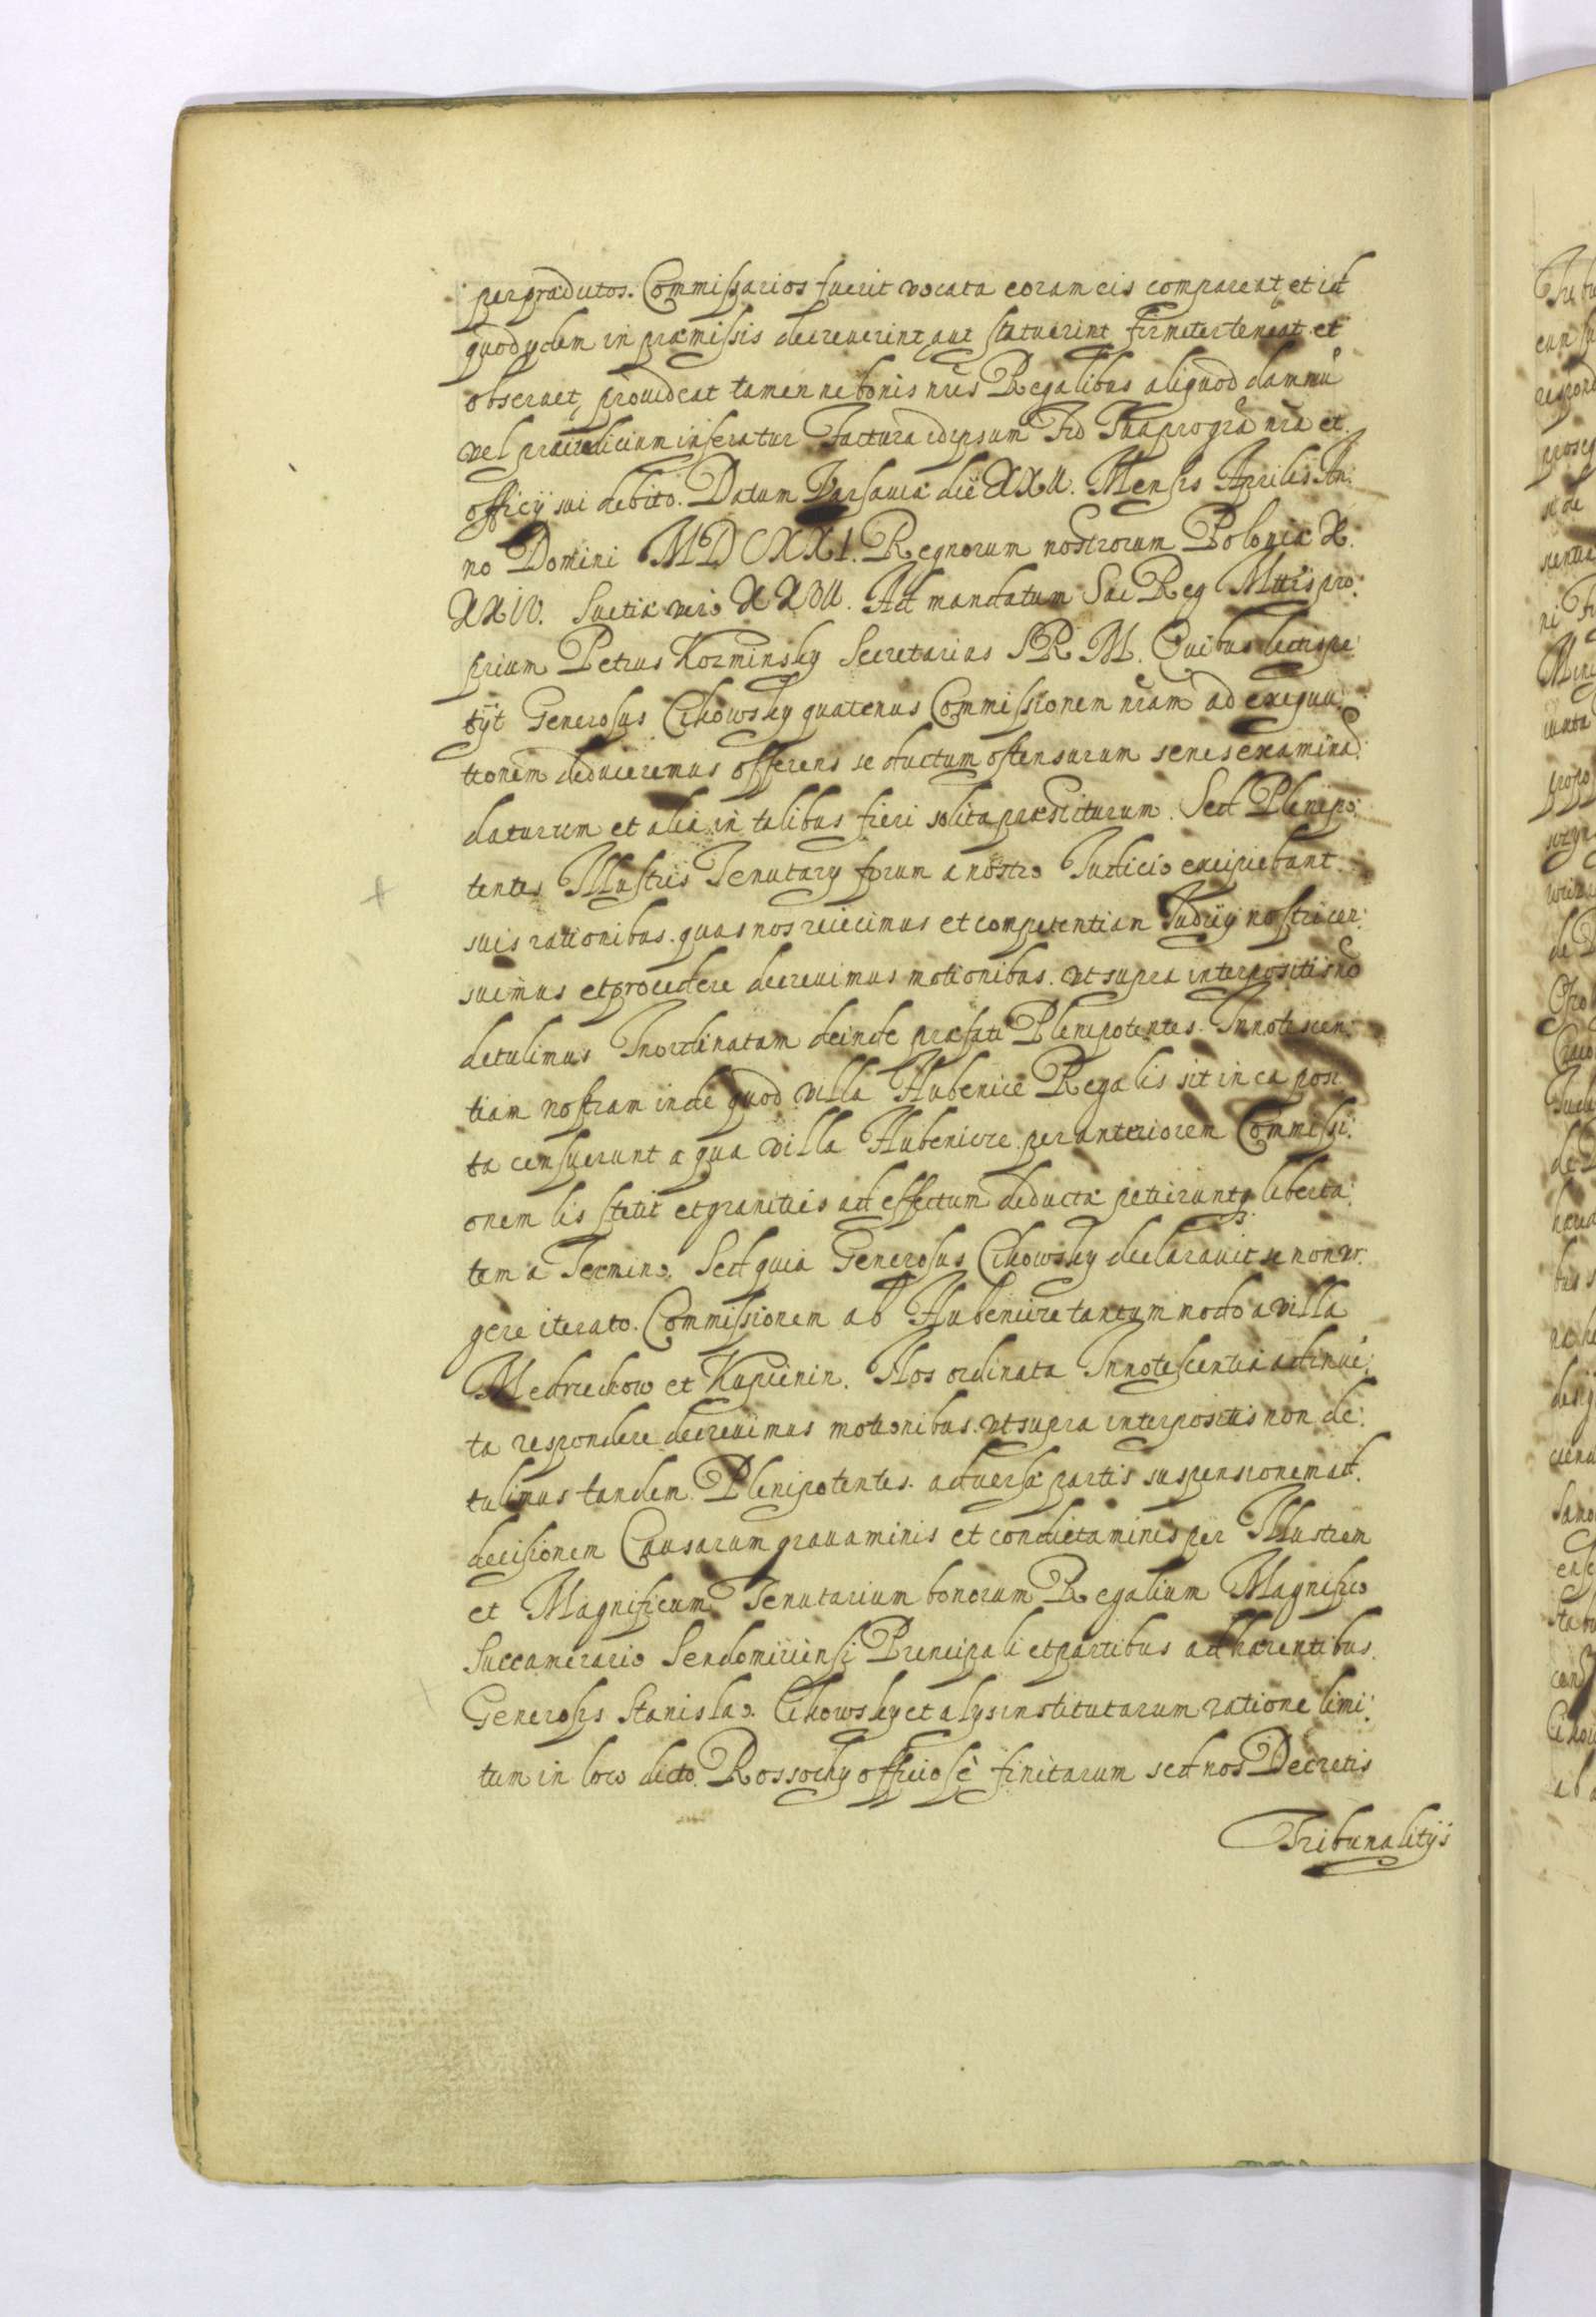 per praedictos. Commissarios fuerit vocata coram eis compareat et id
quod ydem in praemissis decreverint aut statuerint firmiter teneat et
observet, provideat tamen ne bonis nris Regalibus aliquod damnũ
vel praeiudicium inferatur factura id ipsum Fid Tua pro gra nra et
officÿ sui debito. Datum Varsaviæ die XXII. Mensis Aprilis An:
no Domini MDCXXI. Regnorum nostrorum Poloniæ X.
XXIV. Suetiæ vero XXVII. Ad mandatum Sac Reg Mttis pro:
prium Petrus Kozminsky Secretarius SRM. Quibus lectis pe:
tÿt Generosus Cikowsky quatenus Commissionem nram ad exequu:
tionem deduceremus offerens se ductum ostensurum senes examinad.
daturum et alia in talibus fieri solita praestiturum. Sed Plenipo:
tentes Illustris Tenutary forum a nostro Iudicio excipiebant
suis rationibus. quas nos reiecimus et competentiam Iudicÿ nostri cen:
suimus et procedere decrevimus motionibus. ut supra interpositis nõ
detulimus Inordinatam deinde præfati Plenipotentes. Innotescen:
tiam nostram inde quod villa Hubenice Regalis sit in ea posi:
ta censuerunt a qua villa Hubenicze per anteriorem Commissi:
onem lis stetit et granities ad effectum deducta petieruntq liberta:
tem a Termino. Sed quia Generosus Cikowsky declaravit se non ur:
gere iterato. Commissionem ab Hubenicze tantum modo a villa
Medrzechow et Kupienin. Nos ordinata Innotescentia
ta respondere decrevimus motionibus. ut supra interpositis non de:
tulimus tandem Plenipotentes. adversæ partis suspensionem ad.
decisionem Causarum gravaminis et condictaminis per Illustrem
et Magnificum Tenutarium bonorum Regalium Magnifico
Succamerario Sendomiriensi Principali et partibus adhærentibus.
Generosis Stanislao. Cikowsky et alys institutarum ratione limi:
tum in loco dicto. Rossochy officiosè finitarum sed nos Decretis
Tribunalitÿs